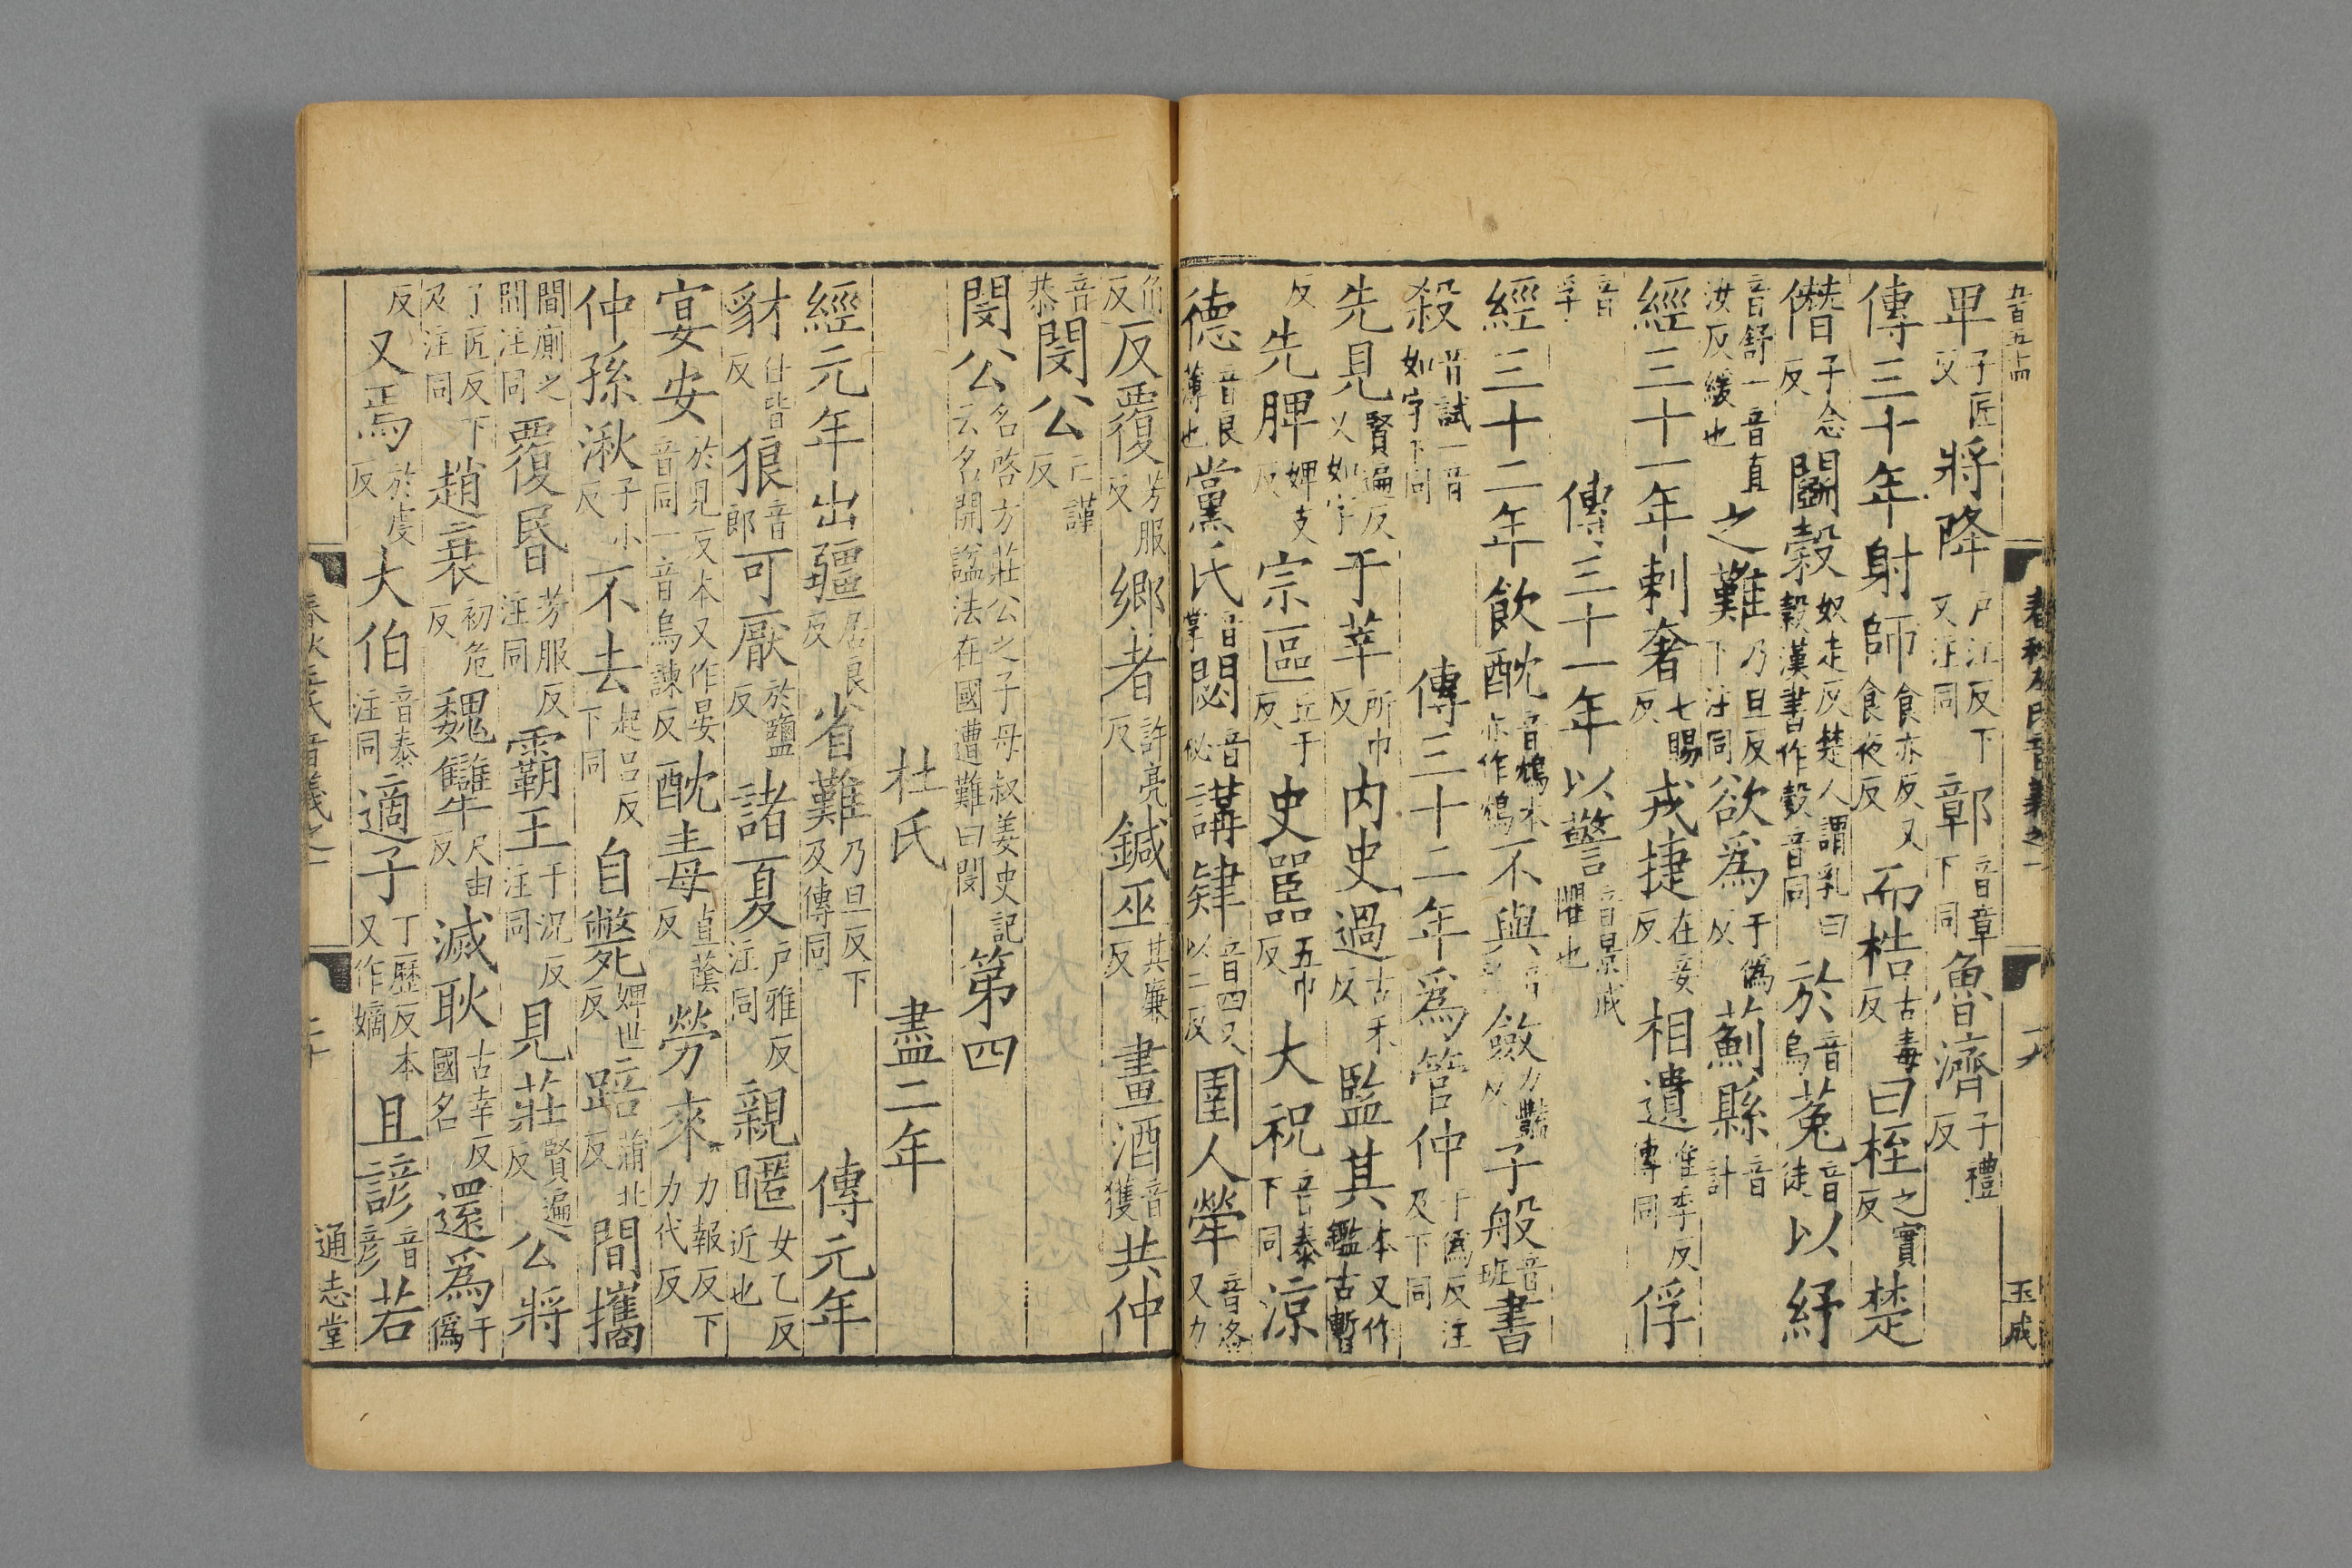 春秋左氏音義之一
十九
玉成
卑子匠反將降戶江反下又注同鄣音章下同魚濟子禮反
傳三十年射師食亦反又食夜反而梏古毒反曰桎之實反楚
僭子念反鬭穀奴走反楚人謂乳曰穀漢書作㝅音同於音烏菟音徒以紓
音舒一音直汝反緩也之難乃旦反下注同欲爲于僞反薊縣音計
經三十一年剌奢七賜反戎捷在妾反相遺唯季反傳同俘
音孚傳三十一年以警音景戒懼也
經三十二年飲酖音鴆本亦作鴆不與音預斂力豔反子般音班書
殺音試一音如字下同傳三十二年爲管仲于僞反注及下同
先見賢遍反又如字于莘所巾反内史過古禾反監其本又作鑑古暫
反先脾婢支反宗區丘于反史嚚五巾反大祝音泰下同涼
德音良薄也黨氏音掌閟音祕講肄音四又以二反圉人犖音洛又力
角反反覆芳服反鄉者許亮反鍼巫其廉反畫酒音獲共仲
音恭閔公亡謹反
閔公名啓方莊公之子母叔姜史記云名開諡法在國遭難曰閔第四
杜氏盡二年
經元年出疆居良反省難乃旦反下及傳同傳元年
豺仕皆反狼音郎可厭於鹽反諸夏戶雅反注同親暱女乙反近也
宴安於見反本又作晏音同一音烏諫反酖毒直蔭反勞來力報反下力代反
仲孫湫子小反不去起呂反下同自斃婢世反踣蒲北反間攜
間廁之間注同覆昬芳服反注同霸王于況反注同見莊賢遍反公將
子匠反下及注同趙衰初危反魏犨尺由反滅耿古幸反國名還爲于僞
反又焉於虔反大伯音泰注同適子丁歷反本又作嫡且諺音彦若
春秋左氏音義之一
二十
通志堂